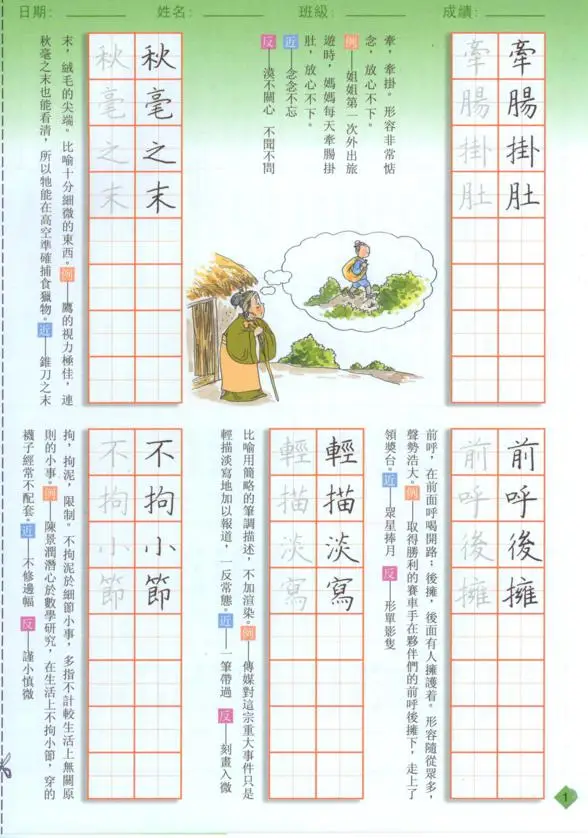 日期：　姓名：　班級：　成績：
牽腸掛肚
牽腸掛肚
牽，牽掛。形容非常惦
念，放心不下。
例——姐姐第一次外出旅
遊時，媽媽每天牽腸掛
肚，放心不下。
近——念念不忘
反——漠不關心　不聞不問
秋毫之末
秋毫之末
末，絨毛的尖端。比喻十分細微的東西。例——鷹的視力極佳，連
秋毫之末也能看清，所以牠能在高空準確捕食獵物。近——錐刀之末
前呼後擁
前呼後擁
前呼，在前面呼喝開路；後擁，後面有人擁護着。形容隨從眾多，
聲勢浩大。例——取得勝利的賽車手在夥伴們的前呼後擁下，走上了
領獎台。近——眾星捧月　反——形單影隻
輕描淡寫
輕描淡寫
比喻用簡略的筆調描述，不加渲染。例——傳媒對這宗重大事件只是
輕描淡寫地加以報道，一反常態。近——一筆帶過　反——刻畫入微
不拘小節
不拘小節
拘，拘泥，限制。不拘泥於細節小事，多指不計較生活上無關原
則的小事。例——陳景潤潛心於數學研究，在生活上不拘小節，穿的
襪子經常不配套。近——不修邊幅　反——謹小慎微
1